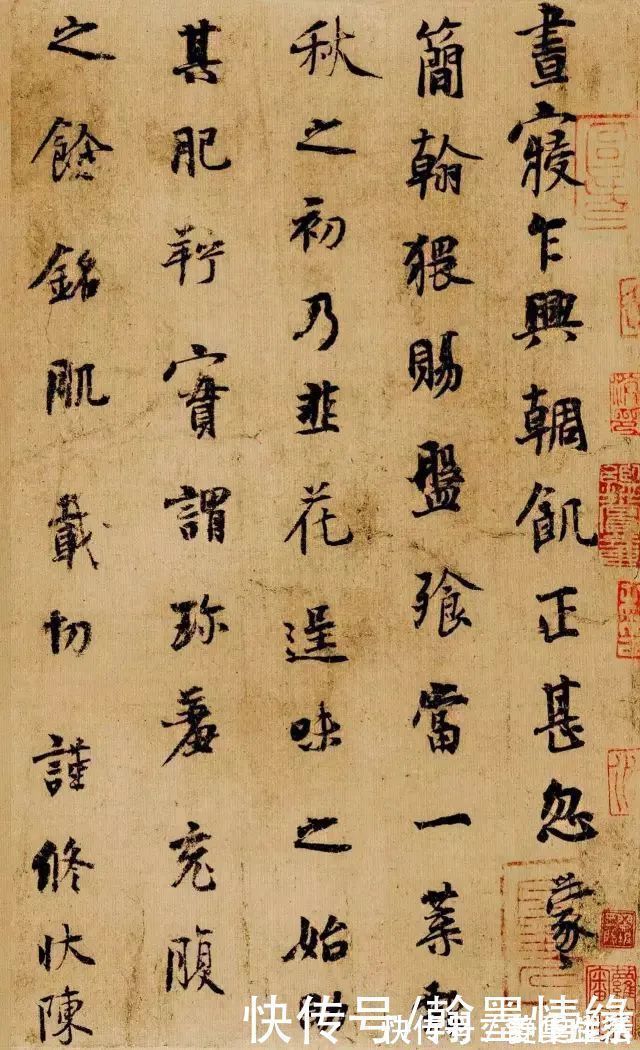 晝寢乍興朝飢正甚忽蒙
簡翰猥賜盤飧當一葉
秋之初乃韭花逞味之始
其肥羜實謂珍羞充腹
之餘銘肌載切謹修狀陳
快传号/翰墨情缘